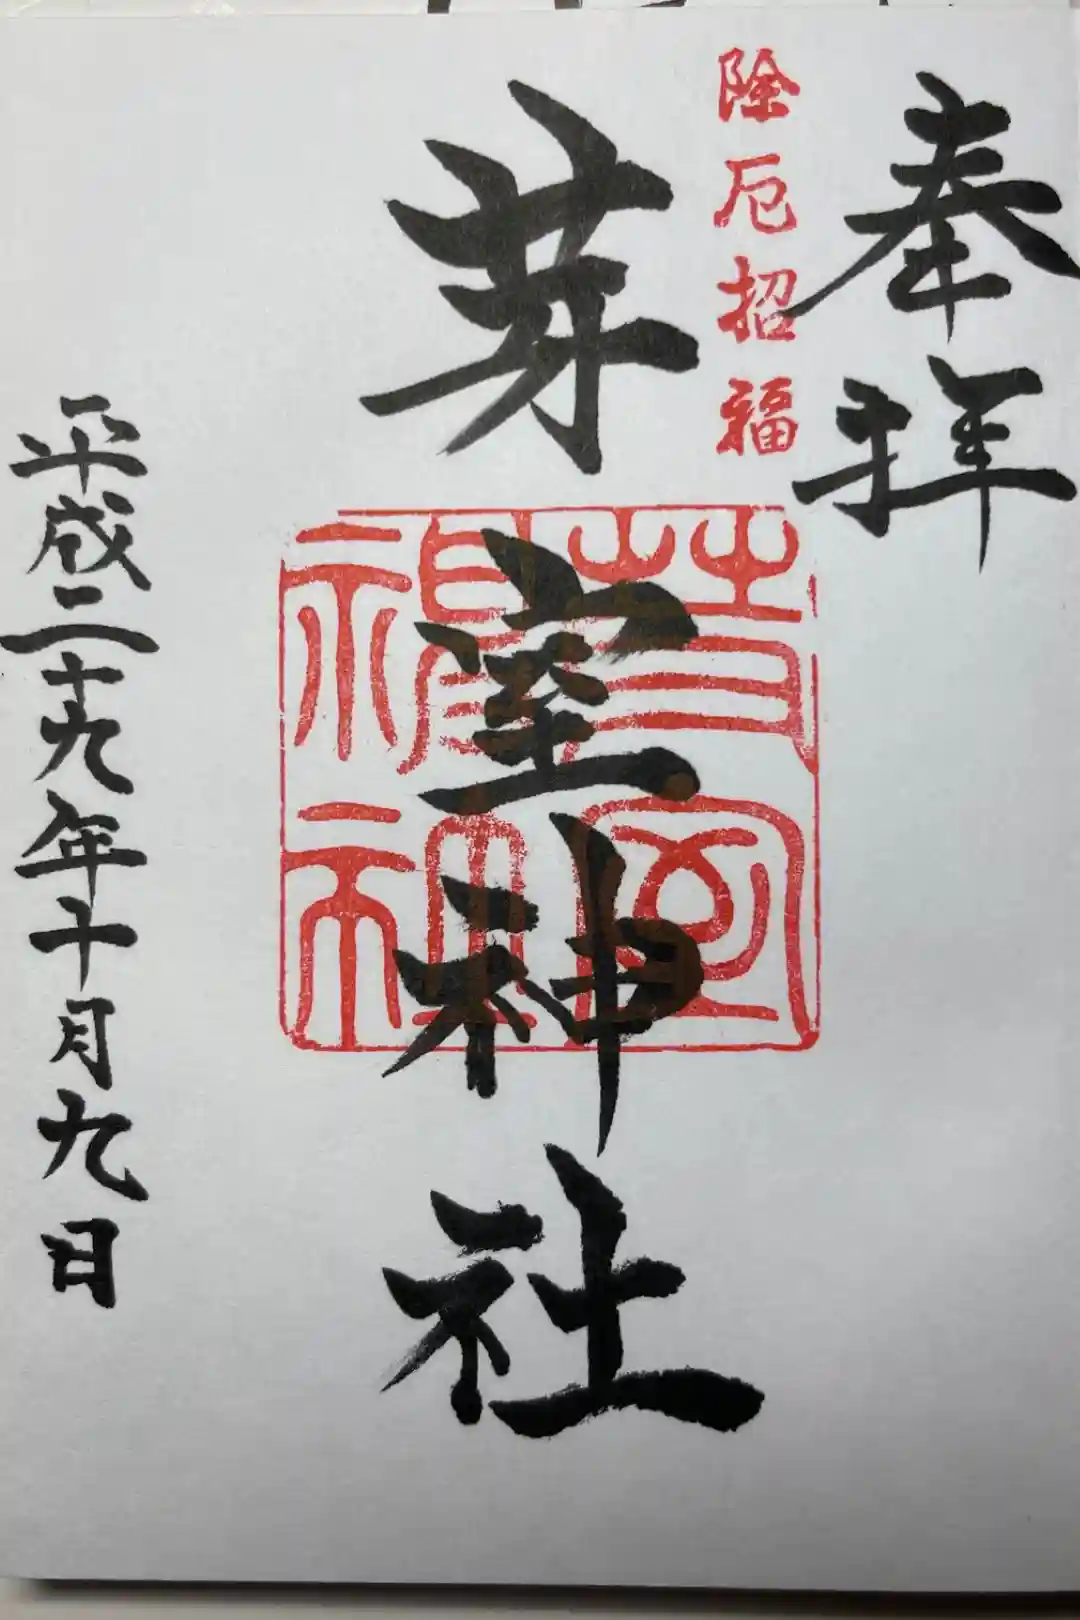 奉拝
除厄招福
芽室神社
平成二十九年十月九日